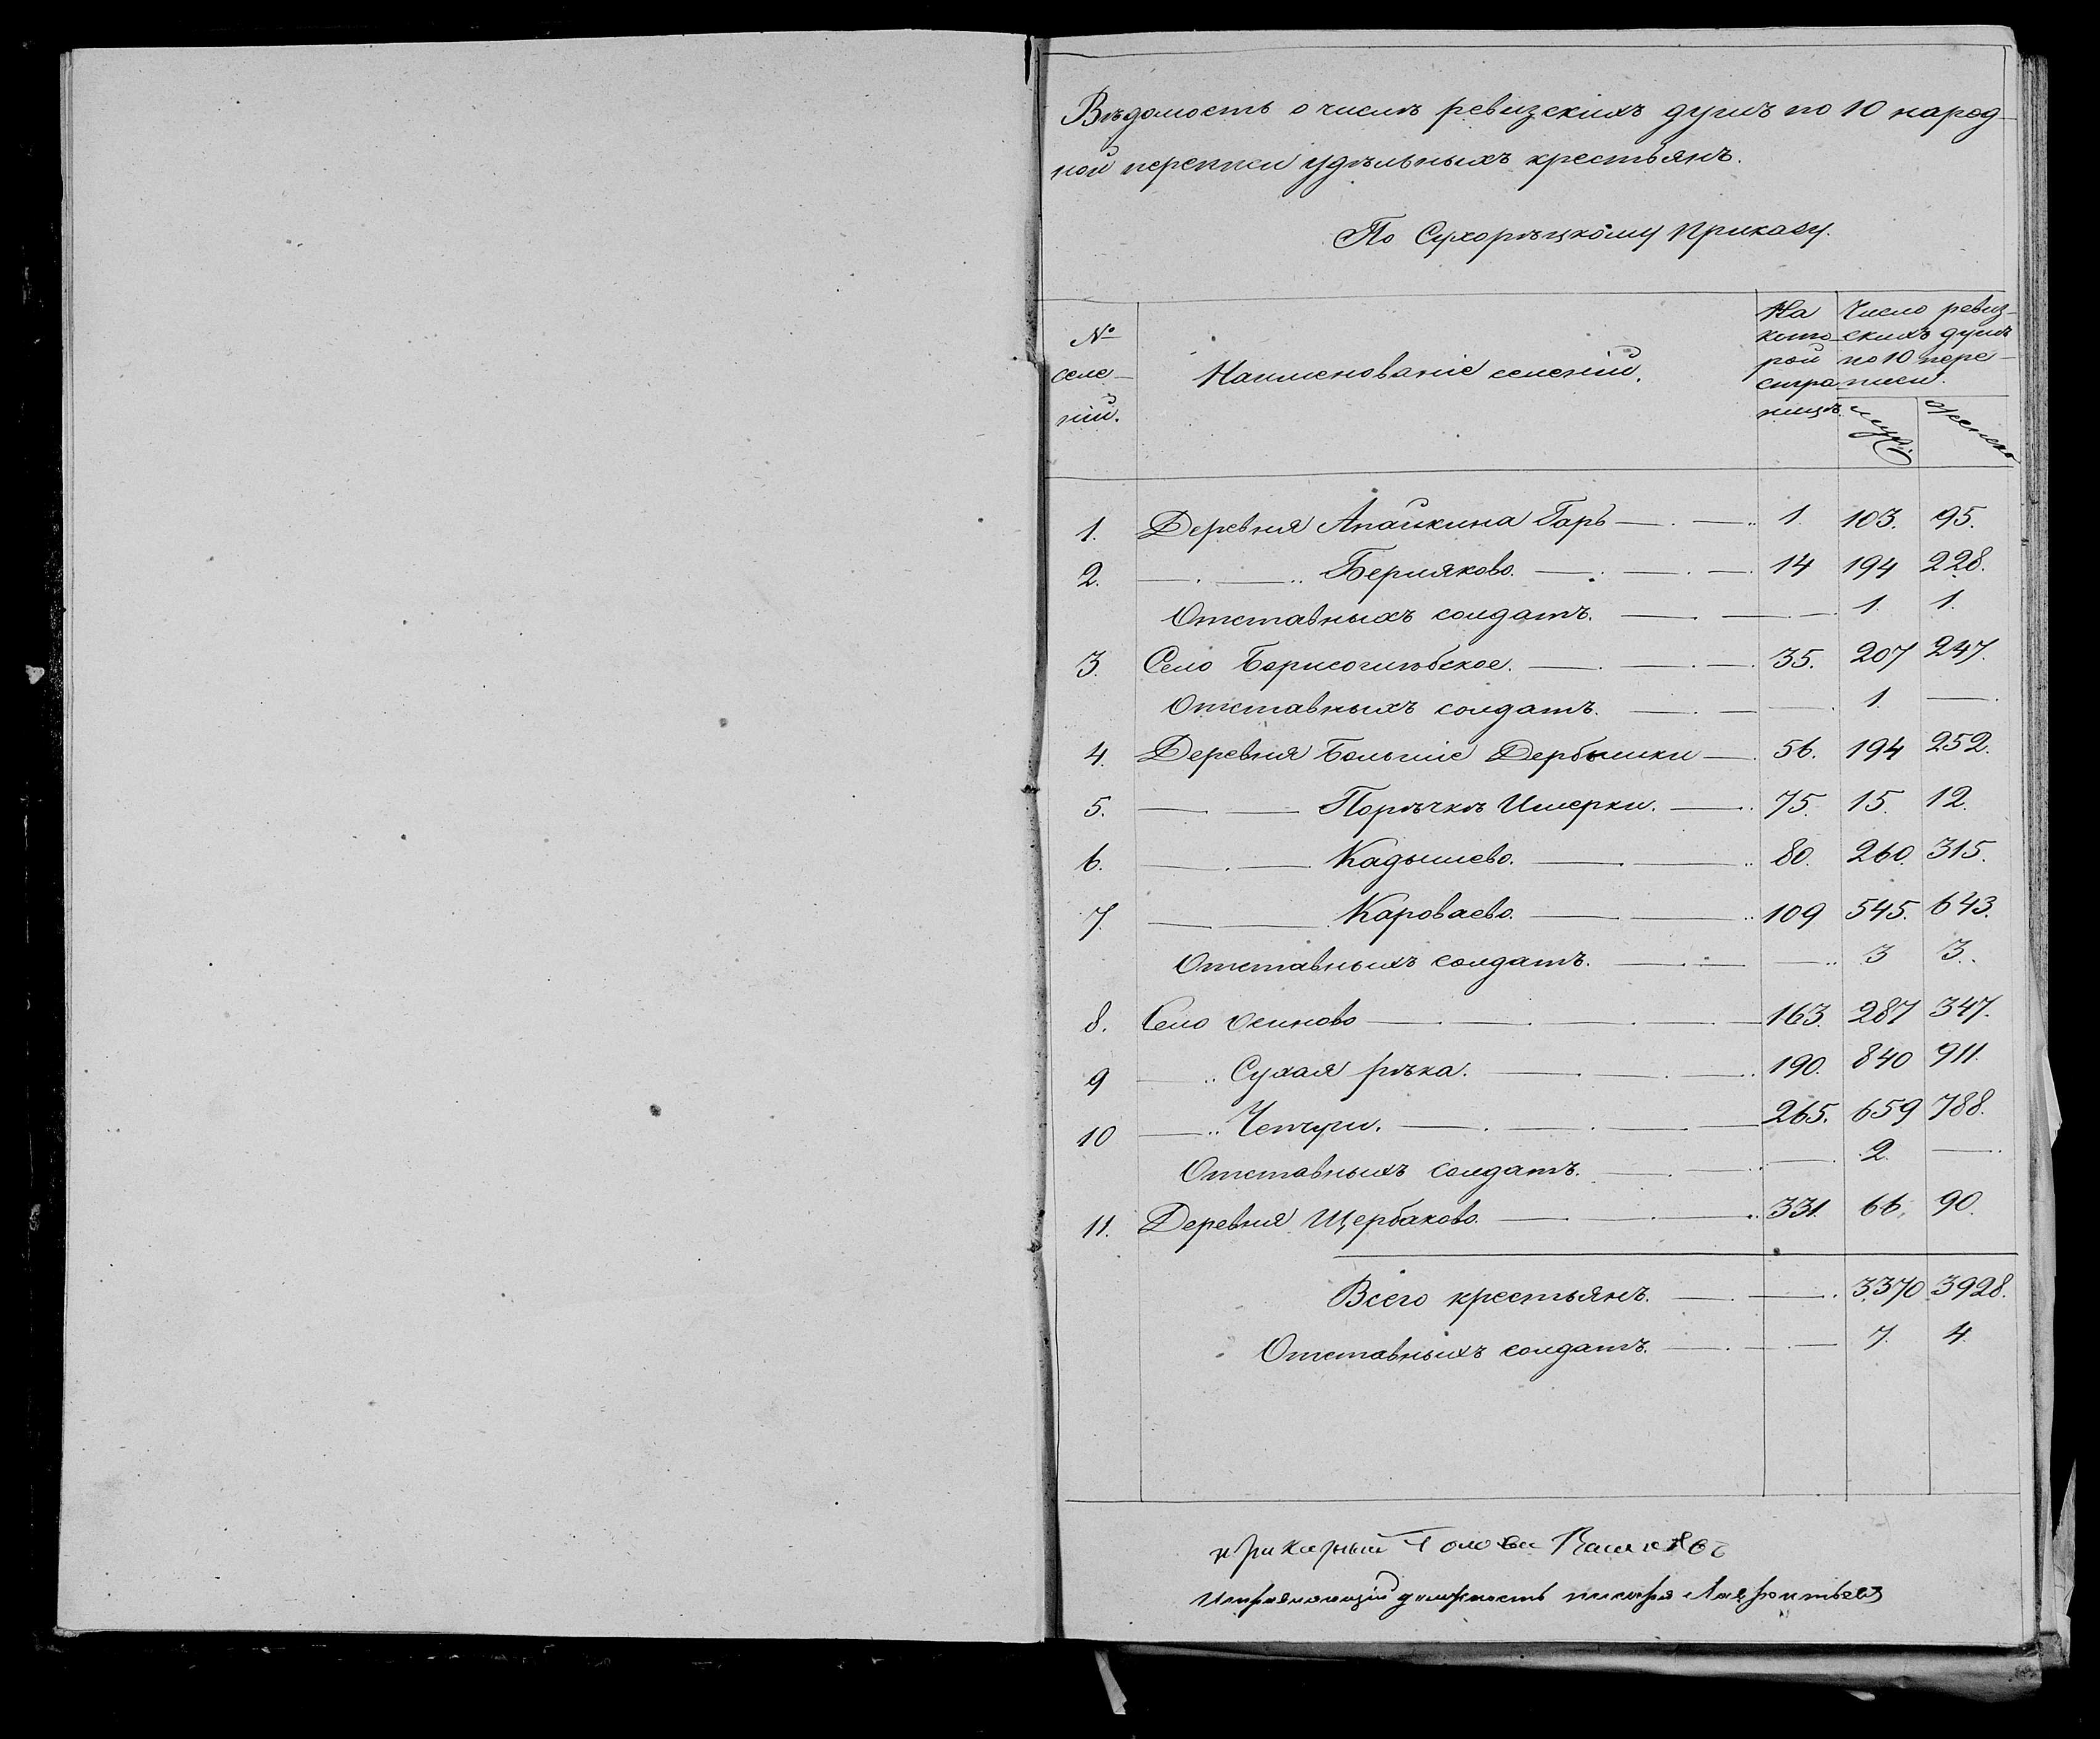 Вѣдомость о числѣ ревизскихъ душъ по 10 народ-
ной переписи удѣльныхъ крестьянъ.
По Сухорѣцкому Приказу.
№ селе-ній. Наименованіе селеній. На кото-рой страницѣ. Число ревиз-скихъ душъ по 10 пере-писи. муж. женск.
1. Деревня Апайкина Гарь 1. 103. 95.
2. Берляково. 14 194 228.
Отставныхъ солдатъ. 1. 1.
3. Село Борисоглѣбское. 35. 207 247.
Отставныхъ солдатъ. 1. —
4. Деревня Большіе Дербышки 56. 194 252.
5. Порѣчкѣ Имерки. 75. 15. 12.
6. Кадышево. 80. 260. 315.
7. Кароваево. 109 545. 643.
Отставныхъ солдатъ. 3 3.
8. Село Осиново 163. 287 347.
9 Сухая рѣка. 190. 840 911.
10 Чепчуги. 265. 659 788.
Отставныхъ солдатъ. 2. —
11. Деревня Щербаково. 331. 66. 90.
Всего крестьянъ. 3370 3928.
Отставныхъ солдатъ. 7. 4
приказный Голова
Исправляющій должность писаря Лаврентьевъ